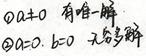 ①a≠0 有唯一解
②a=0. b=0 无穷多解